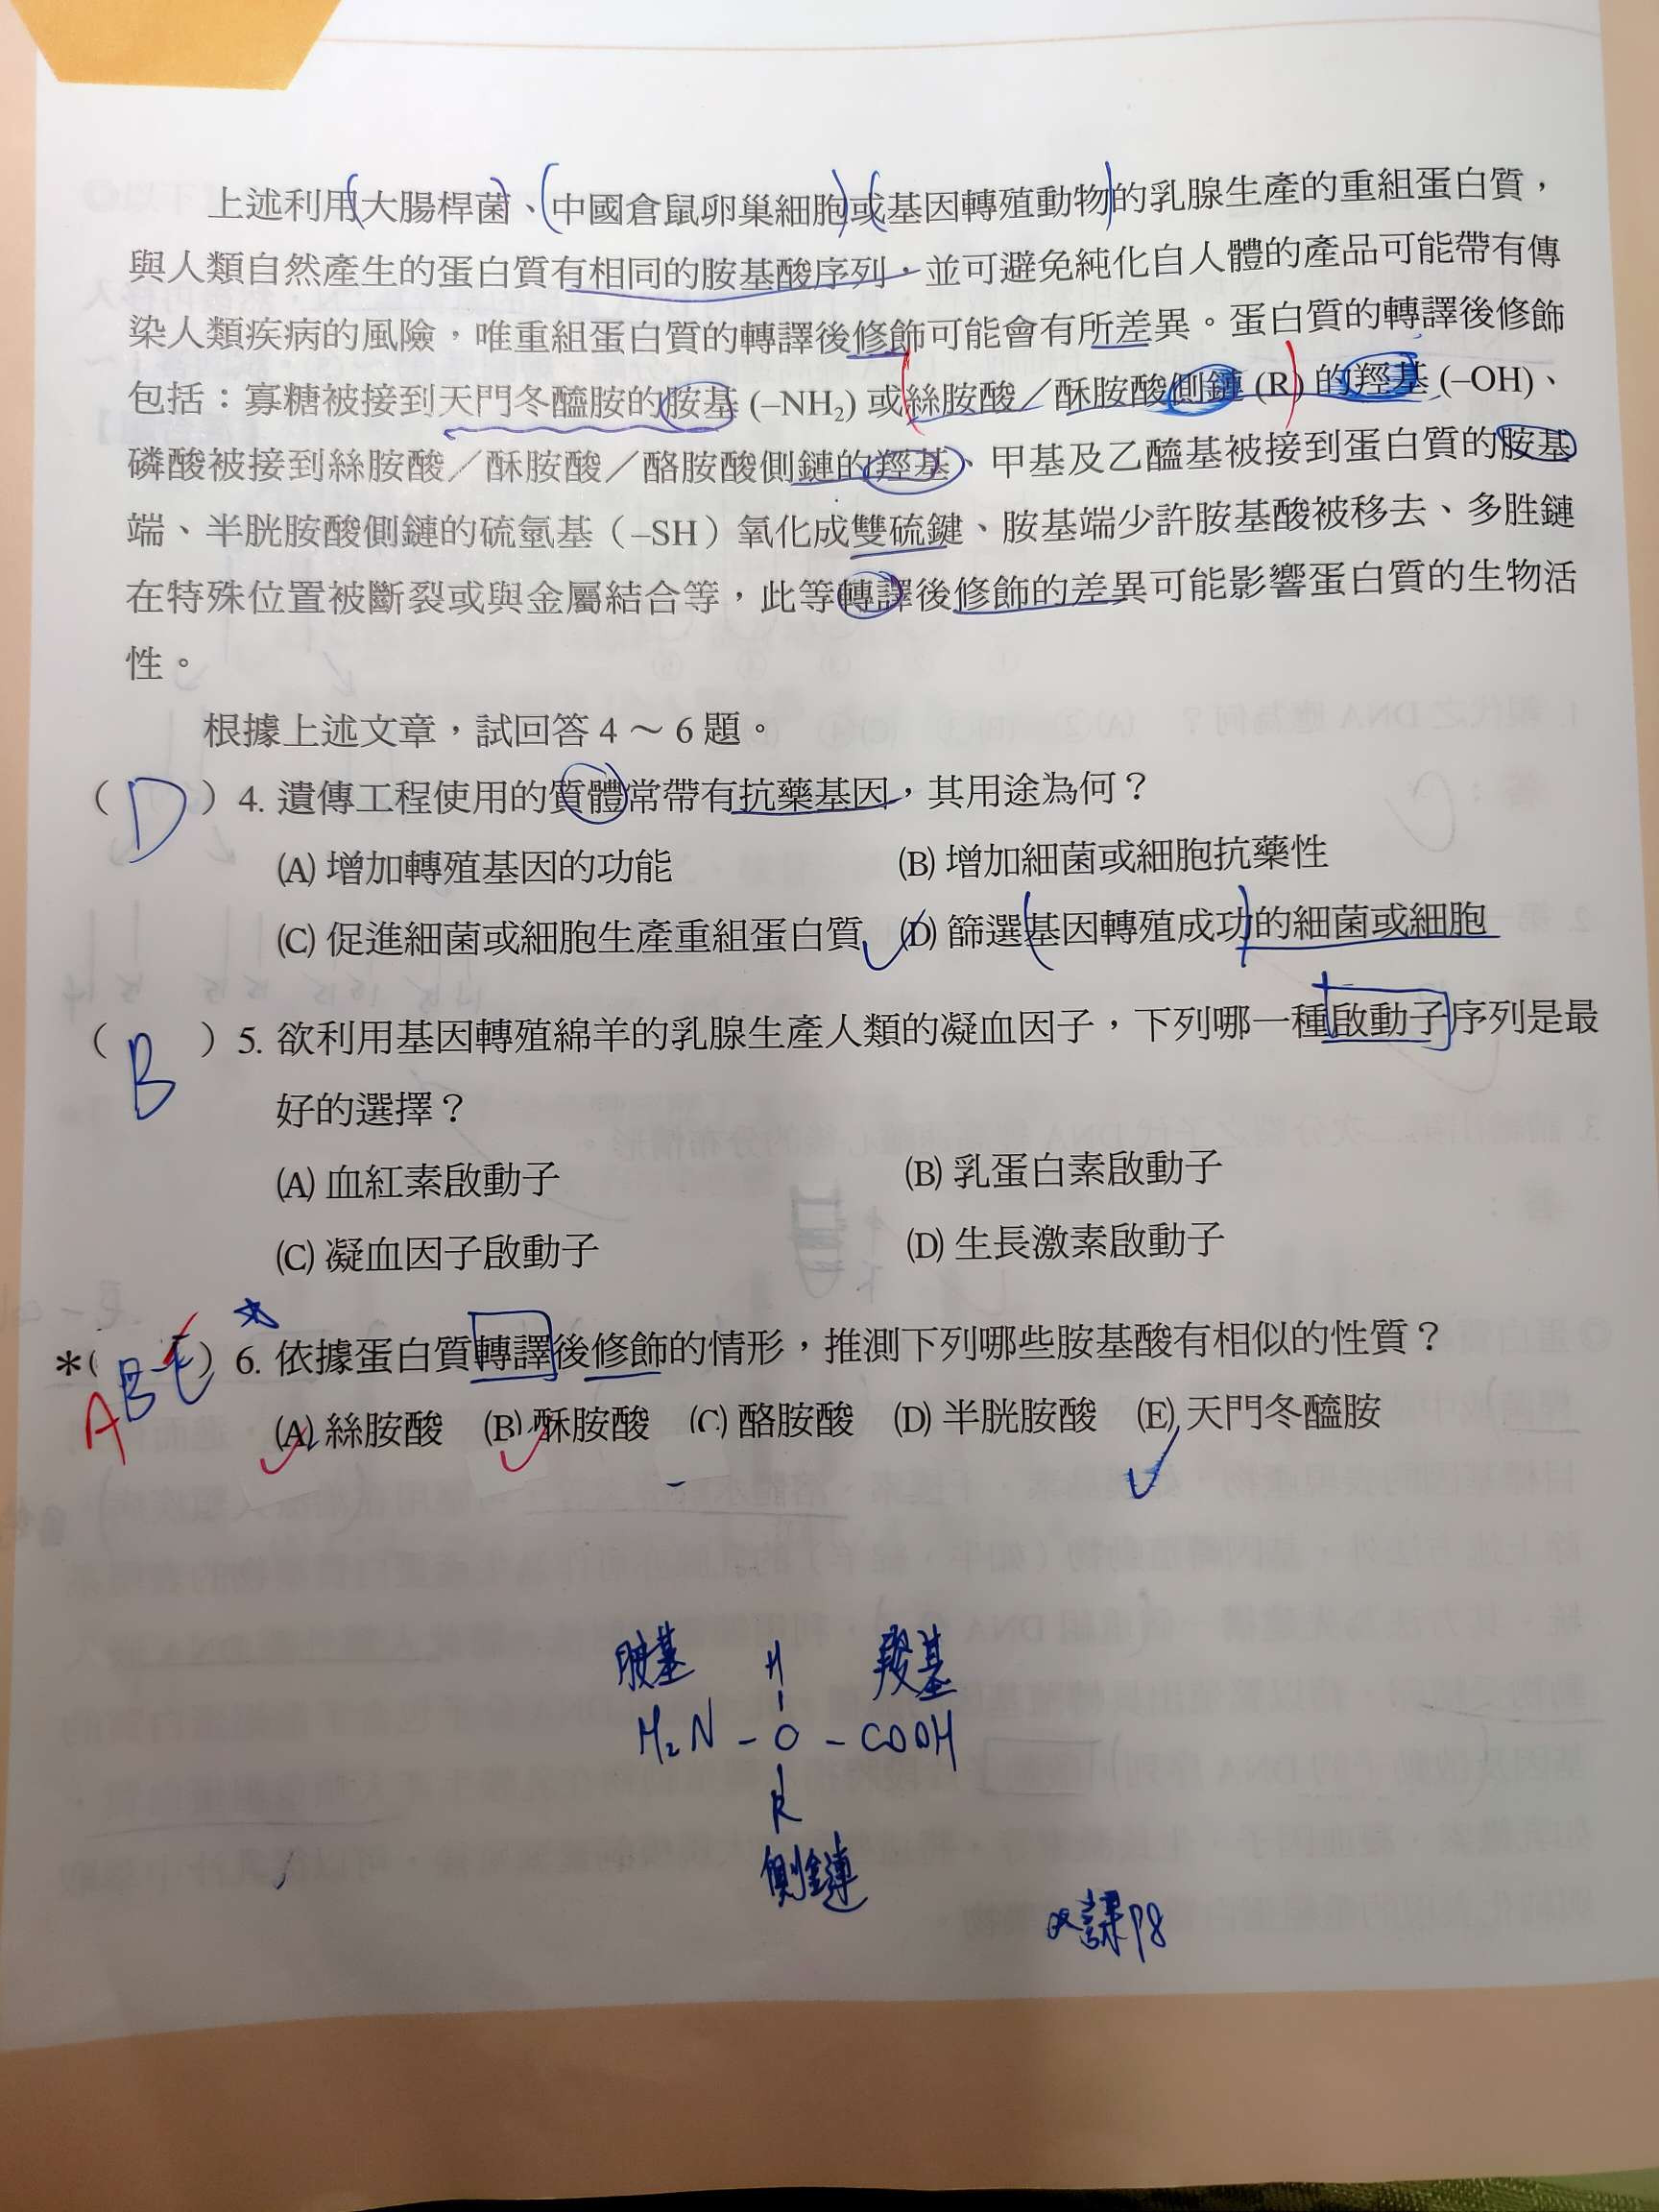 上述利用大腸桿菌、中國倉鼠卵巢細胞或基因轉殖動物的乳腺生產的重組蛋白質，
與人類自然產生的蛋白質有相同的胺基酸序列，並可避免純化自人體的產品可能帶有傳
染人類疾病的風險，唯重組蛋白質的轉譯後修飾可能會有所差異。蛋白質的轉譯後修飾
包括：寡糖被接到天門冬醯胺的胺基 (–NH₂) 或絲胺酸／酥胺酸側鏈 (R) 的羥基 (–OH)、
磷酸被接到絲胺酸／酥胺酸／酪胺酸側鏈的羥基、甲基及乙醯基被接到蛋白質的胺基
端、半胱胺酸側鏈的硫氫基（–SH）氧化成雙硫鍵、胺基端少許胺基酸被移去、多胜鏈
在特殊位置被斷裂或與金屬結合等，此等轉譯後修飾的差異可能影響蛋白質的生物活
性。
根據上述文章，試回答 4 ～ 6 題。
（ D ）4. 遺傳工程使用的質體常帶有抗藥基因，其用途為何？
(A) 增加轉殖基因的功能 (B) 增加細菌或細胞抗藥性
(C) 促進細菌或細胞生產重組蛋白質 (D) 篩選基因轉殖成功的細菌或細胞
（ B ）5. 欲利用基因轉殖綿羊的乳腺生產人類的凝血因子，下列哪一種啟動子序列是最
好的選擇？
(A) 血紅素啟動子 (B) 乳蛋白素啟動子
(C) 凝血因子啟動子 (D) 生長激素啟動子
*（ ABE ）6. 依據蛋白質轉譯後修飾的情形，推測下列哪些胺基酸有相似的性質？
(A) 絲胺酸 (B) 酥胺酸 (C) 酪胺酸 (D) 半胱胺酸 (E) 天門冬醯胺
胺基 H 羧基
H₂N - C - COOH
R
側鏈
課 P8